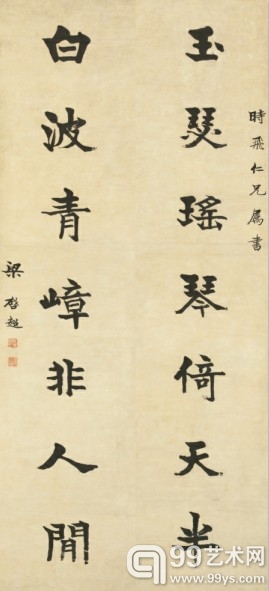 時飛仁兄属書
玉瑟瑤琴倚天半
白波青嶂非人間
梁啓超
99艺术网
www.99ys.com